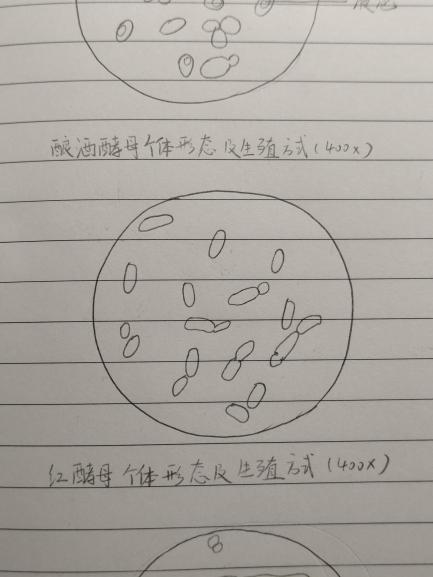 液泡
酿酒酵母个体形态及生殖方式(400×)
红酵母个体形态及生殖方式(400×)